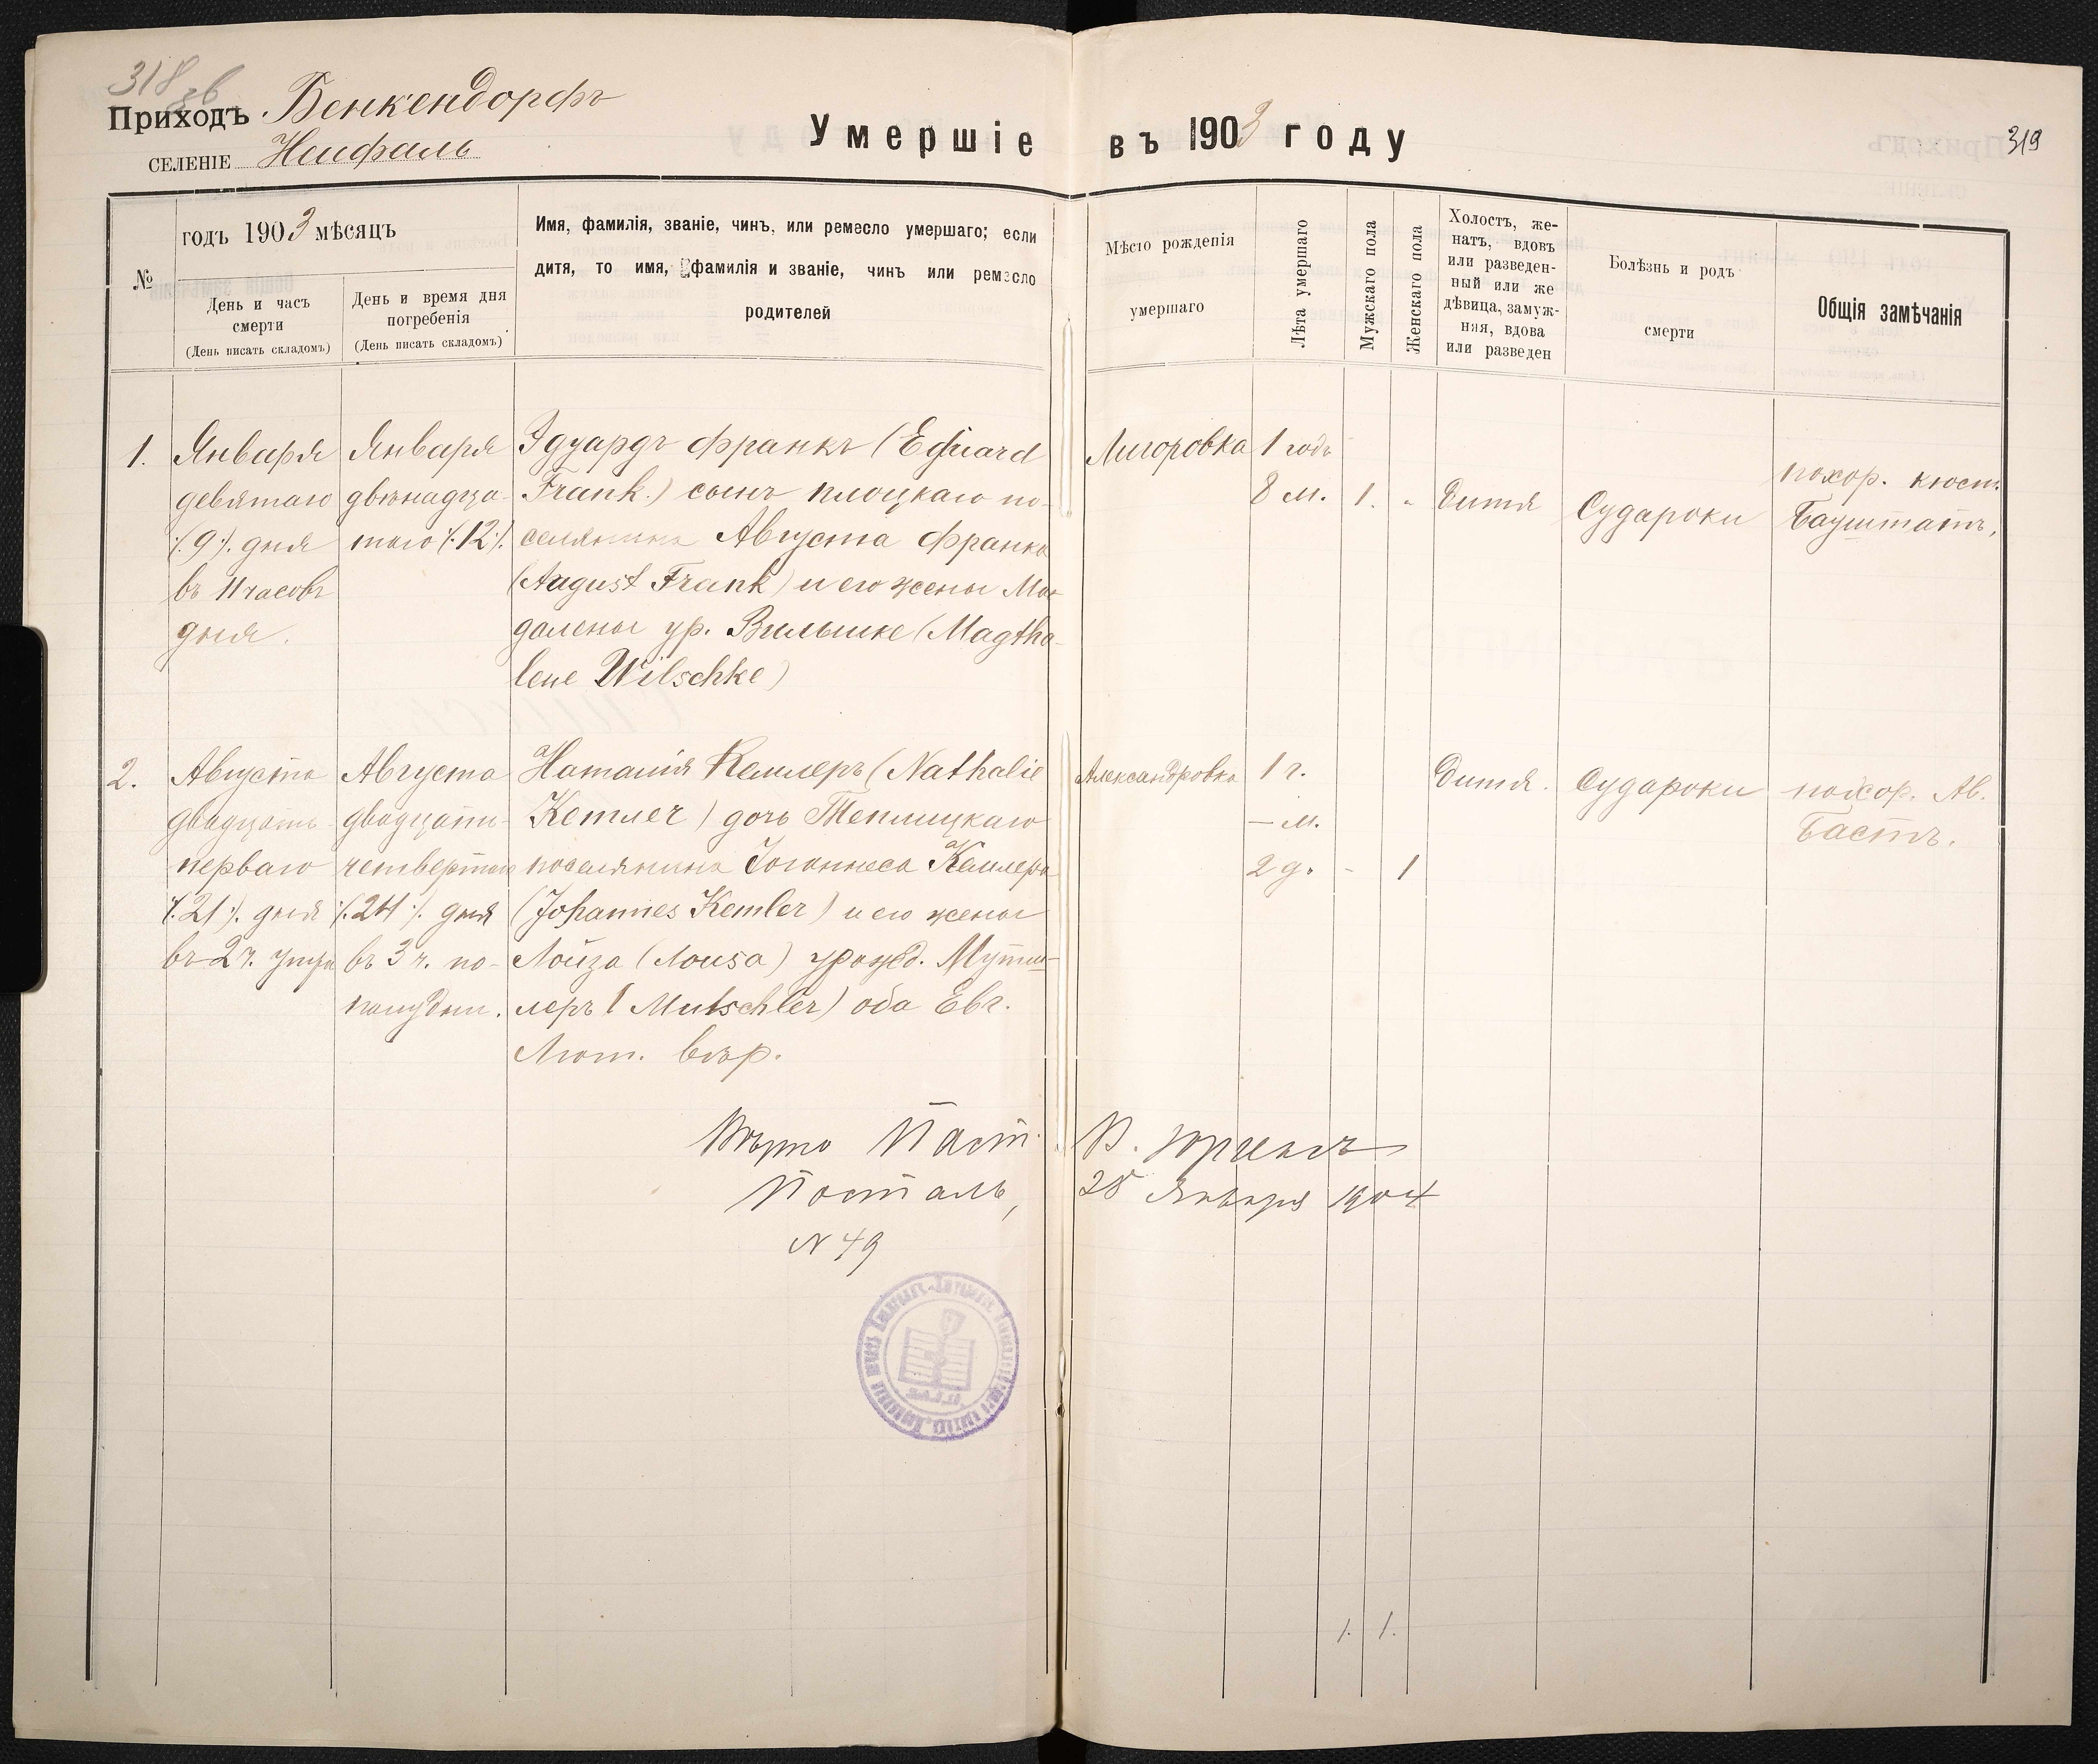 318
зв
Приходъ Бенкендорфъ
СЕЛЕНІЕ Нейфаль
Умершіе въ 1903 году
319
№
годъ 1903 мѣсяцъ
День и часъ
смерти
(День писать складомъ)
День и время дня
погребенія
(День писать складомъ)
Имя, фамилія, званіе, чинъ, или ремесло умершаго; если
дитя, то имя, фамилія и званіе, чинъ или ремесло
родителей
Мѣсто рожденія
умершаго
Лѣта умершаго
Мужскаго пола
Женскаго пола
Холостъ, же-
натъ, вдовъ
или разведен-
ный или же
дѣвица, замуж-
няя, вдова
или разведен
Болѣзнь и родъ
смерти
Общія замѣчанія
1.
Января
девятаго
/:9:/. дня
въ 11 часовъ
дня.
Января
двѣнадца-
таго /:12:/.
Эдуардъ Франкъ (Eduard
Frank.) сынъ плоцкаго по-
селянина Августа Франка
(August Frank) и его жены Маг
далены ур. Вильшке (Magtha-
lene Wilschke)
Лигоровка
1 годъ
8 м.
1.
"
Дитя
Судароки
похор. кюст.
Бауштатъ.
2.
Августа
двадцать
перваго
/:21:/. дня
въ 2 ч. утра
Августа
двадцать-
четвертаго
/:24:/. дня
въ 3 ч. по-
полудни.
Наталія Кемлеръ (Nathalie
Кемлеr) дочь Теплицкаго
поселянина Іоганнеса Кемлера
(Johannes Kemler) и его жены
Лоиза (Лousa) урожд. Мутш-
леръ (Mutschler) оба Евг.
Лют. вѣр.
Александровка
1 г.
— м.
2 д.
-
1
Дитя.
Судароки
похор. Ав.
Бастъ.
Вѣрно Паст. В.
Постталь, 28 Января 1904
N 49
1. 1.